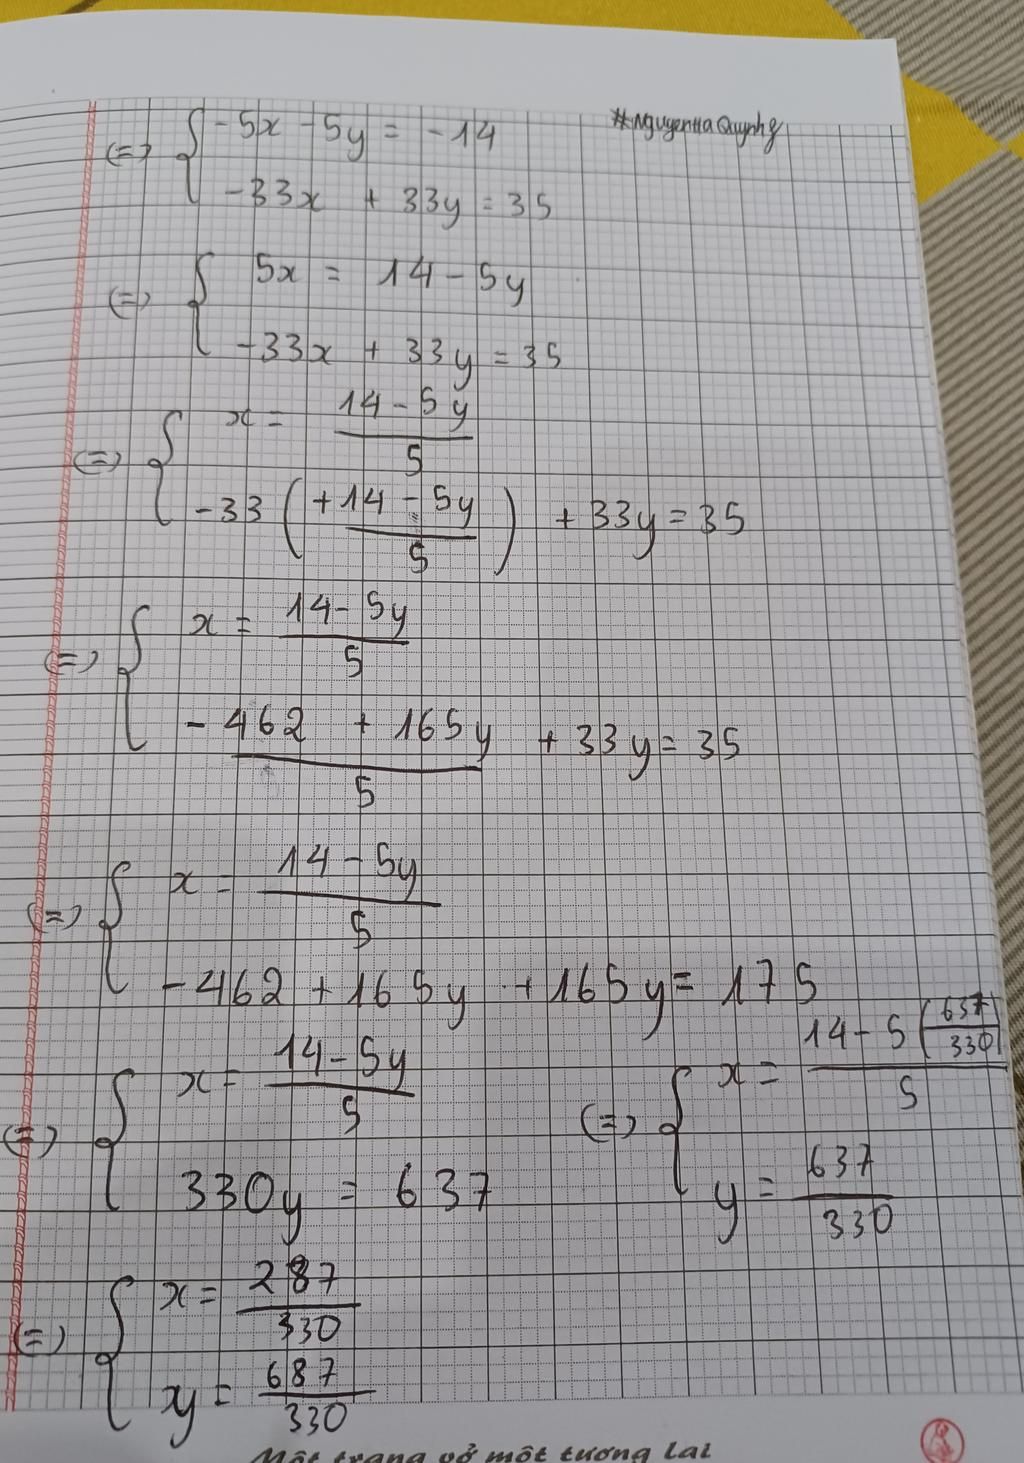 #NguyenHaQuynh8
(=) { -5x - 5y = -14
-33x + 33y = 35
(=) { 5x = 14 - 5y
-33x + 33y = 35
(=) { x = \frac{14 - 5y}{5}
-33 ( \frac{+14 - 5y}{5} ) + 33y = 35
(=) { x = \frac{14 - 5y}{5}
\frac{-462 + 165y}{5} + 33y = 35
(=) { x = \frac{14 - 5y}{5}
-462 + 165y + 165y = 175
(=) { x = \frac{14 - 5y}{5}
330y = 637
(=) { x = \frac{14 - 5(\frac{637}{330})}{5}
y = \frac{637}{330}
(=) { x = \frac{287}{330}
xy = \frac{687}{330}
Một trang vở một tương lai